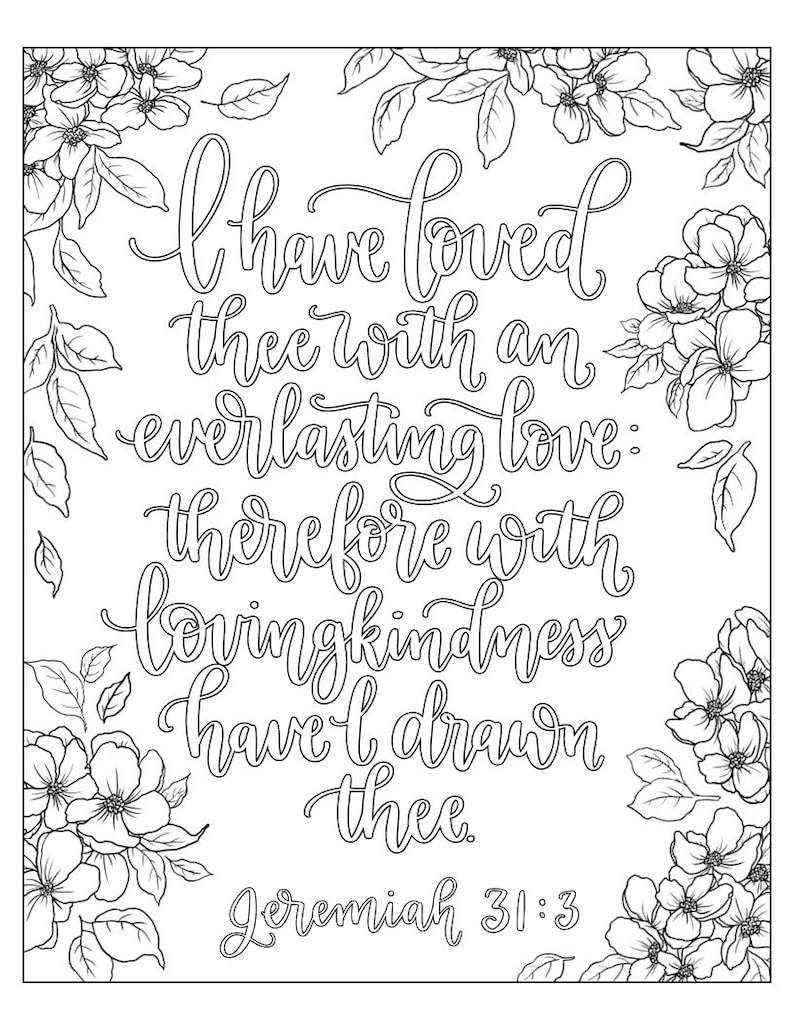 I have loved
thee with an
everlasting love:
therefore with
lovingkindness
have I drawn
thee.
Jeremiah 31:3